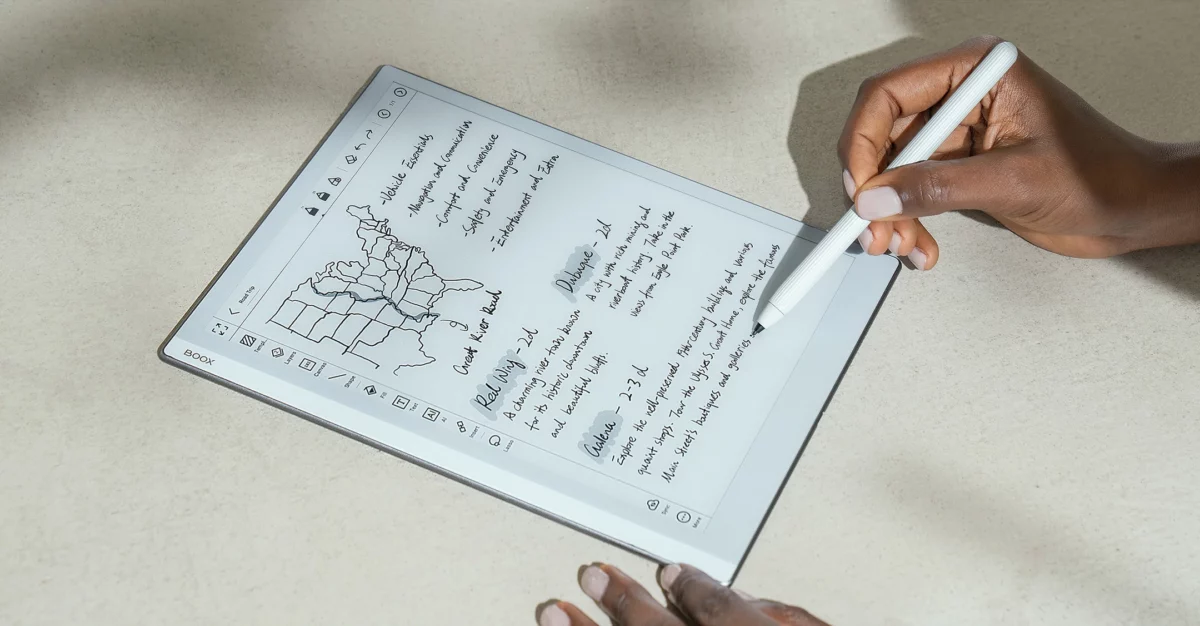 BOOX
Road Trip
Templ..
Layers
Canvas
Shape
Fill
Text
AI
AI
Insert
Lasso
Sync
More
-Vehicle Essentials
-Navigation and Communication
-Comfort and Convenience
-Safety and Emergency
-Entertainment and Extra
Great River Road
Red Wing - 2d
A charming river town known
for its historic downtown
and beautiful bluffs.
Dubuque - 2d
A city with rich mining and
riverboat history. Take in the
views from Eagle Point Park
Galena - 2-3 d
Explore the well-preserved century buildings and various
quaint shops. Tour the Ulysses S. Grant Home, explore the famous
Main Street's boutiques and galleries.